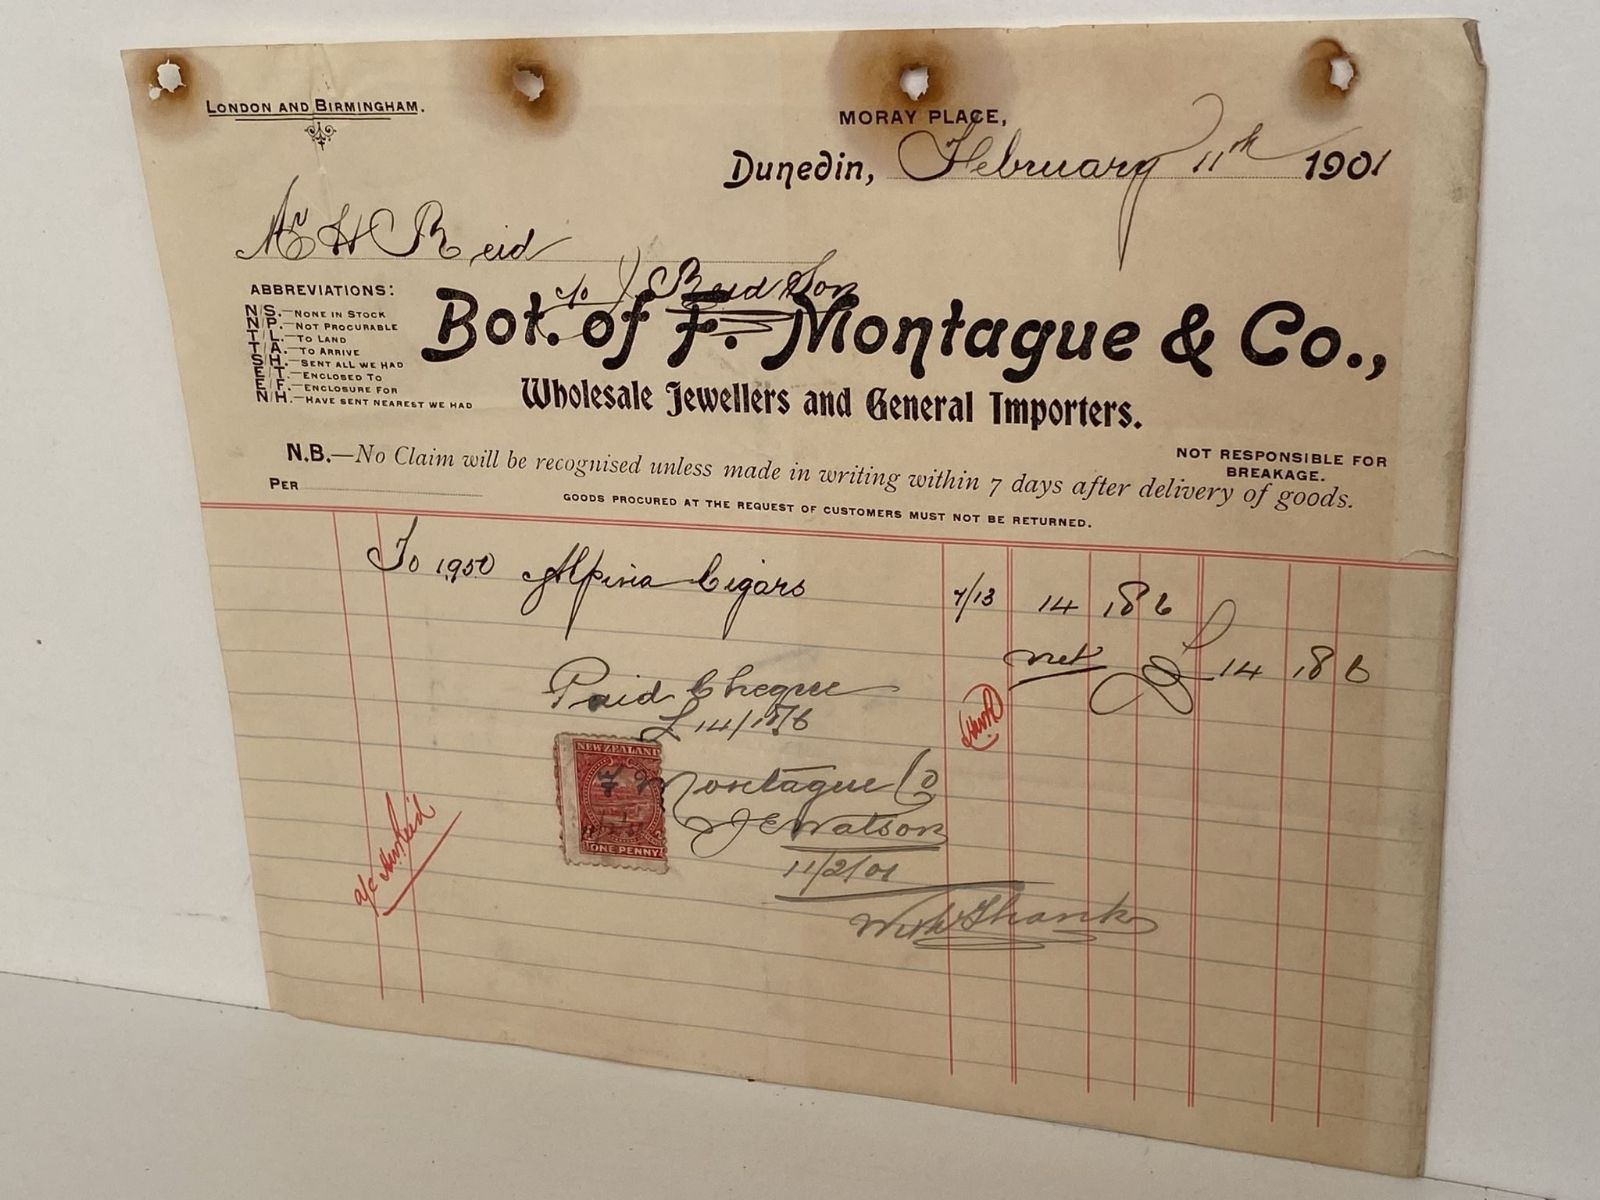 LONDON AND BIRMINGHAM.
MORAY PLACE,
Dunedin, February 11th 1901
Mr H Reid
c/o J Reid & Son
ABBREVIATIONS:
N/S.—NONE IN STOCK
N/P.—NOT PROCURABLE
T/L.—TO LAND
T/A.—TO ARRIVE
S/H.—SENT ALL WE HAD
E/T.—ENCLOSED TO
E/F.—ENCLOSURE FOR
N/H.—HAVE SENT NEAREST WE HAD
Bot. of F. Montague & Co.,
Wholesale Jewellers and General Importers.
NOT RESPONSIBLE FOR
BREAKAGE.
N.B.—No Claim will be recognised unless made in writing within 7 days after delivery of goods.
PER
GOODS PROCURED AT THE REQUEST OF CUSTOMERS MUST NOT BE RETURNED.
To 1950 Alpina Cigars 7/13 14 18 6
net £ 14 18 6
Paid Cheque
£14/18/6
NEW ZEALAND
F Montague Co
J E Watson
ONE PENNY
11/2/01
With Thanks
a/c